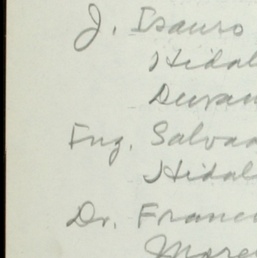 J. Isauro
Hidal
Duran
Ing. Salvad
Hidal
Dr. Franci
More